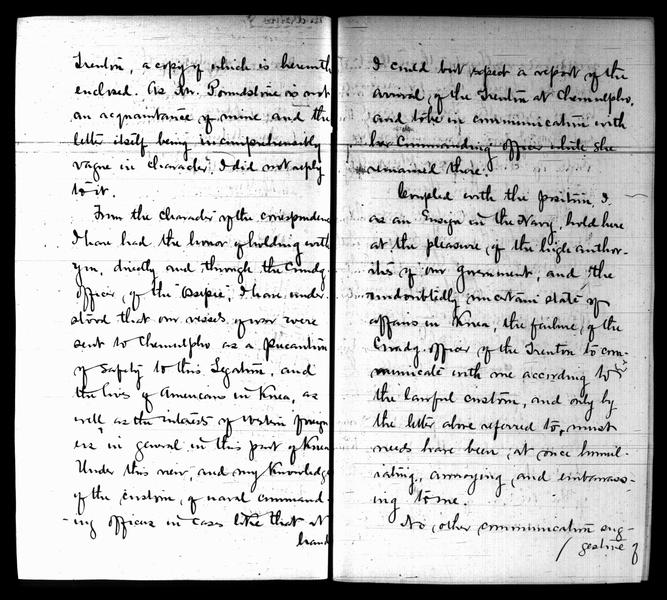 Trenton, a copy of which is herewith
enclosed. As Mr. Poundstone is not
an acquaintance of mine and the
letter itself being incomprehensibly
vague in character, I did not reply
to it.
From the character of the correspondence
I have had the honor of holding with
you, directly and through the Comdg.
officer, of the "Ossipee", I have under-
stood that our vessels of war were
sent to Chemulpho as a precaution
of safety to this Legation, and
the lives of Americans in Korea, as
well as the interests of Western foreign
ers in general in this part of Korea
Under this view, and my knowledge
of the custom, of naval command-
ing officers in cases like that at
hand
I could but expect a report of the
arrival, of the Trenton at Chemulpho,
and to be in communication with
her Commanding officer while she
remained there.
Coupled with the position, I
as an Ensign in the Navy, hold here
at the pleasure, of the high author-
ities of our Government, and the
undoubtedly uncertain state of
affairs in Korea, the failure, of the
Comdg. officer of the Trenton to com-
municate with me according to
the lawful custom, and only by
the letter above referred to, must
needs have been, at once humil-
iating, annoying and embarrass-
ing to me.
No other communication sug-
gestive